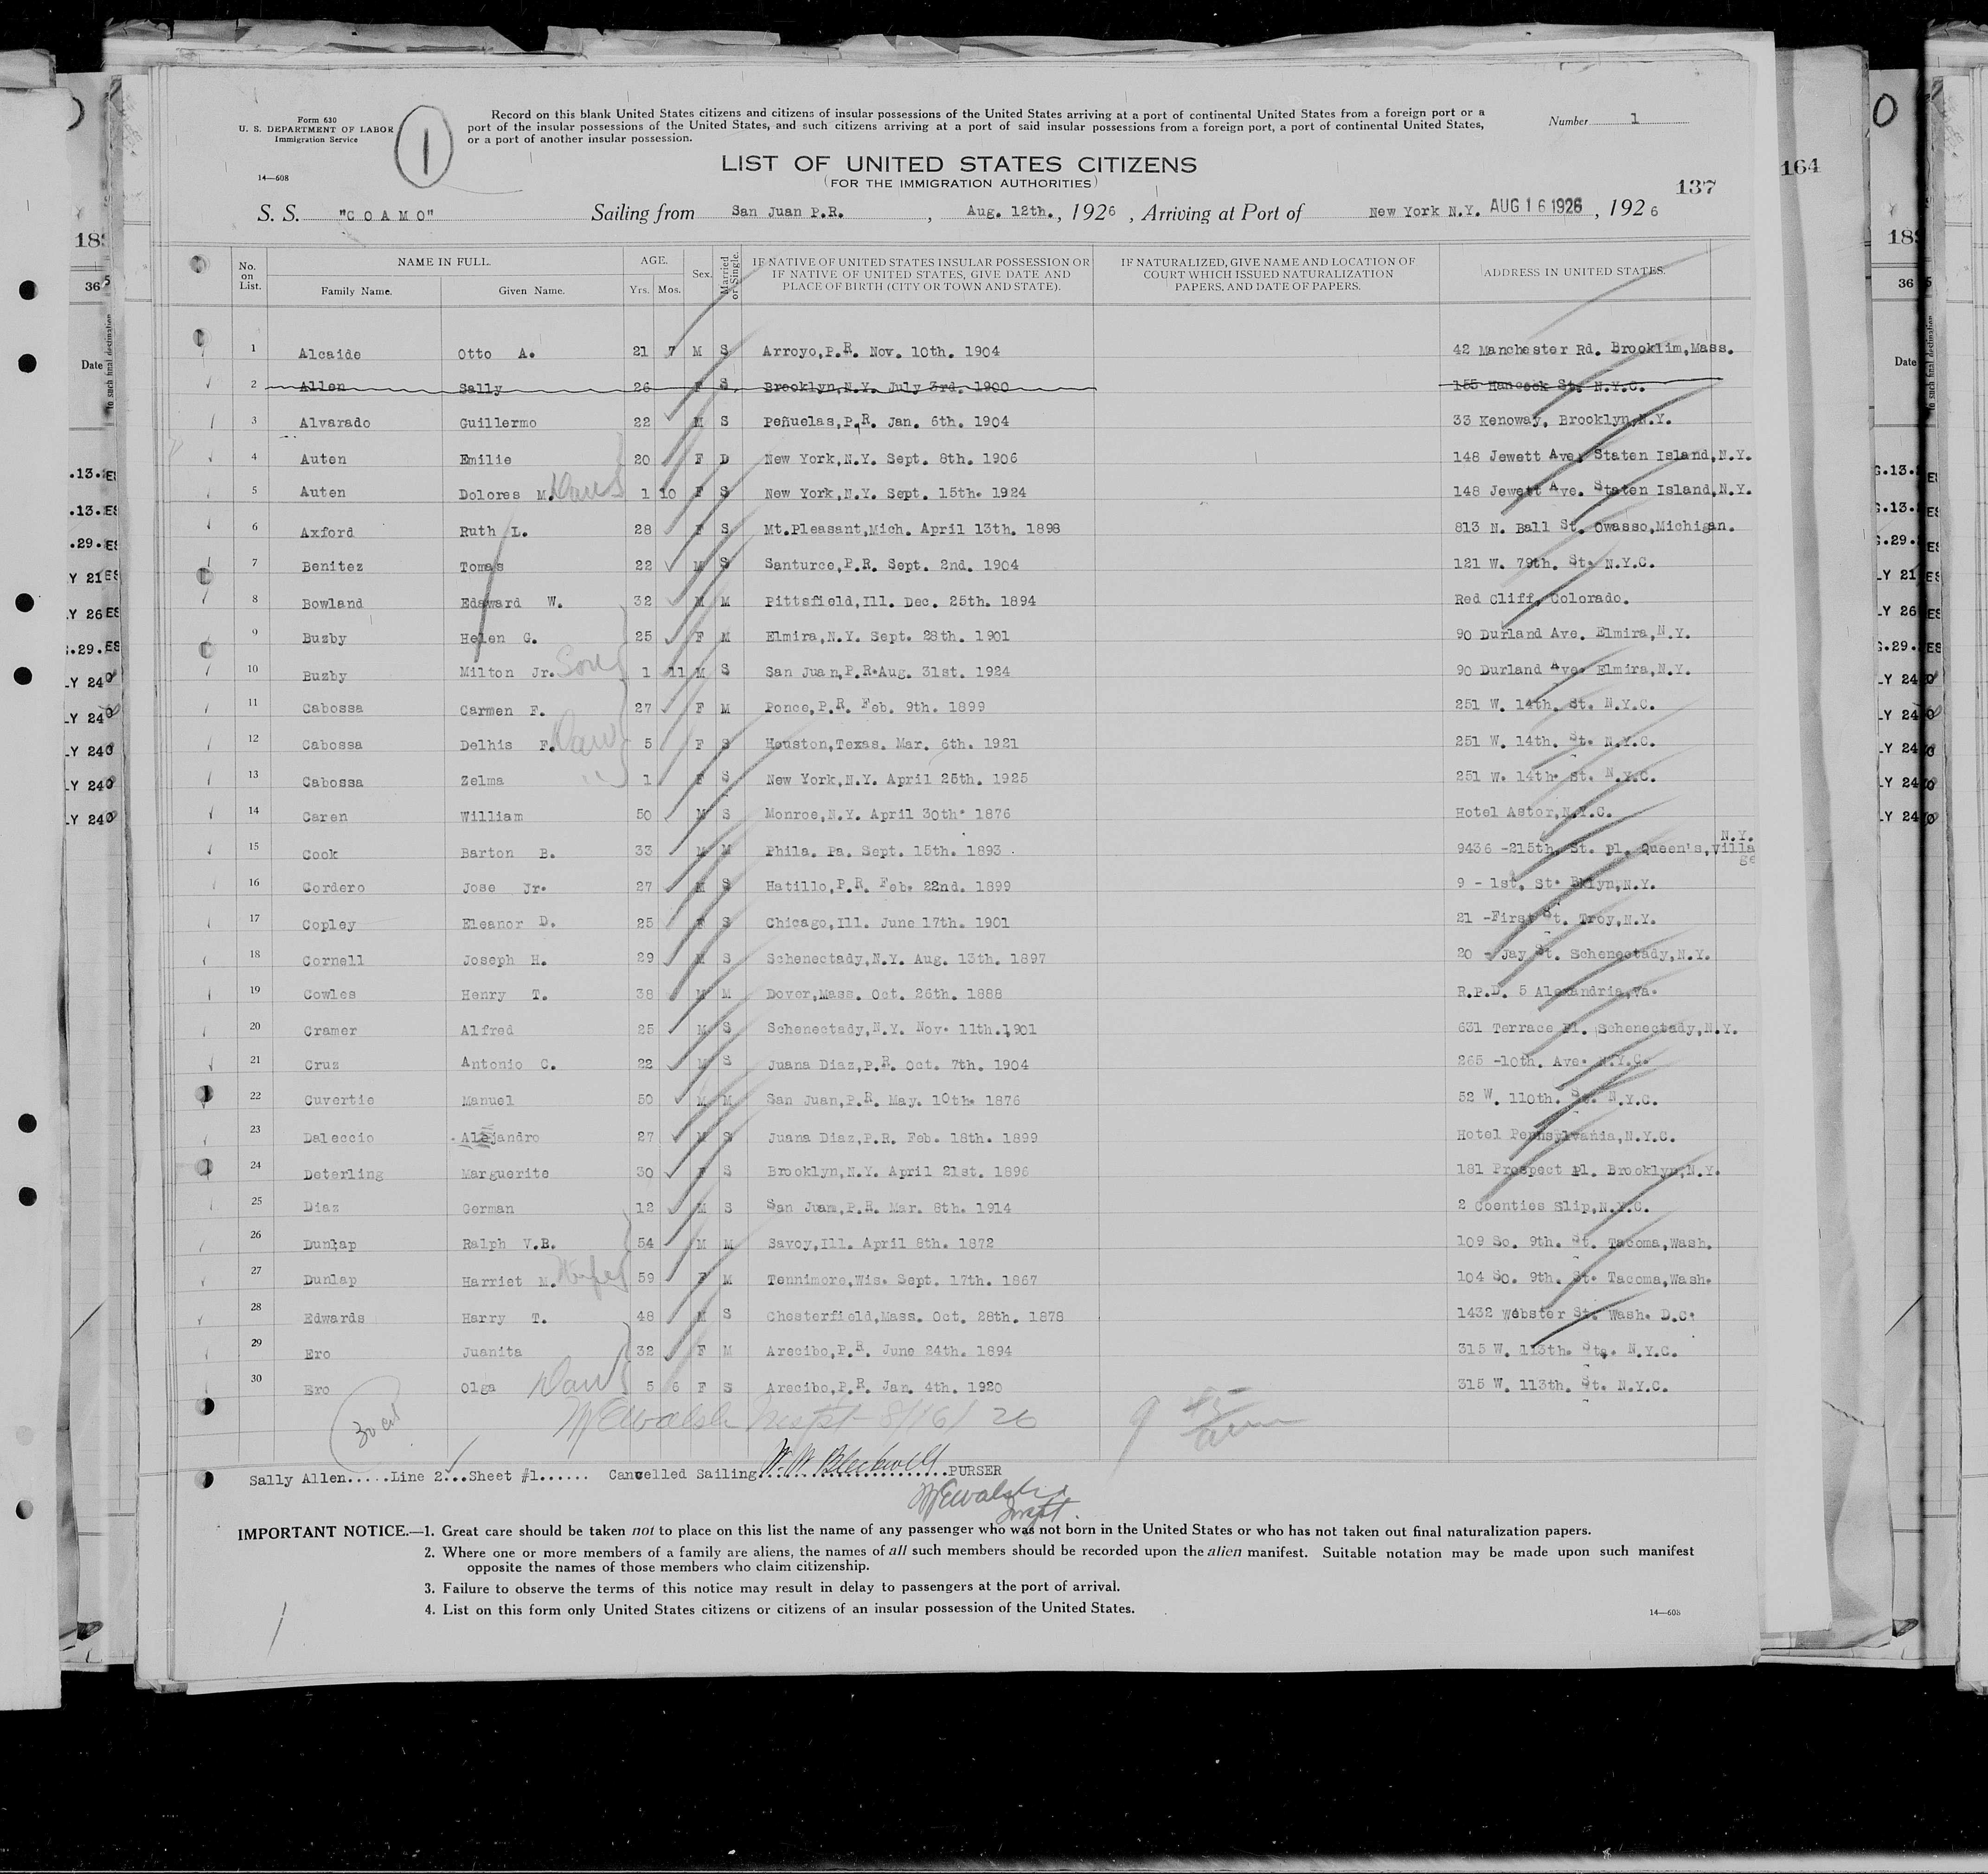 Form 630
U. S. DEPARTMENT OF LABOR
Immigration Service
14—608
1
Record on this blank United States citizens and citizens of insular possessions of the United States arriving at a port of continental United States from a foreign port or a
port of the insular possessions of the United States, and such citizens arriving at a port of said insular possessions from a foreign port, a port of continental United States,
or a port of another insular possession.
Number 1
LIST OF UNITED STATES CITIZENS
(FOR THE IMMIGRATION AUTHORITIES)
137
164
S. S. "COAMO" Sailing from San Juan P.R. , Aug. 12th. , 1926 , Arriving at Port of New York N.Y. AUG 16 1926 , 1926
No. on List. NAME IN FULL. Family Name. Given Name. AGE. Yrs. Mos. Sex. Married or Single. IF NATIVE OF UNITED STATES INSULAR POSSESSION OR IF NATIVE OF UNITED STATES, GIVE DATE AND PLACE OF BIRTH (CITY OR TOWN AND STATE). IF NATURALIZED, GIVE NAME AND LOCATION OF COURT WHICH ISSUED NATURALIZATION PAPERS, AND DATE OF PAPERS. ADDRESS IN UNITED STATES.
1 Alcaide Otto A. 21 7 M S Arroyo,P.R. Nov. 10th. 1904 42 Manchester Rd. Brooklim,Mass.
2 Allen Sally 26 F S Brooklyn,N.Y. July 3rd. 1900 155 Hancock St. N.Y.C.
3 Alvarado Guillermo 22 M S Peñuelas,P.R. Jan. 6th. 1904 33 Kenoway, Brooklyn,N.Y.
4 Auten Emilie 20 F D New York,N.Y. Sept. 8th. 1906 148 Jewett Ave. Staten Island,N.Y.
5 Auten Dolores M. Dau 1 10 F S New York,N.Y. Sept. 15th. 1924 148 Jewett Ave. Staten Island,N.Y.
6 Axford Ruth L. 28 F S Mt.Pleasant,Mich. April 13th. 1898 813 N. Ball St. Owasso,Michigan.
7 Benitez Tomas 22 M S Santurce,P.R. Sept. 2nd. 1904 121 W. 79th. St. N.Y.C.
8 Bowland Edaward W. 32 M M Pittsfield,Ill. Dec. 25th. 1894 Red Cliff, Colorado.
9 Buzby Helen G. 25 F M Elmira,N.Y. Sept. 28th. 1901 90 Durland Ave. Elmira,N.Y.
10 Buzby Milton Jr. Son 1 11 M S San Juan,P.R.Aug. 31st. 1924 90 Durland Ave. Elmira,N.Y.
11 Cabossa Carmen F. 27 F M Ponce,P.R. Feb. 9th. 1899 251 W. 14th. St. N.Y.C.
12 Cabossa Delhis F. Dau 5 F S Houston,Texas. Mar. 6th. 1921 251 W. 14th. St. N.Y.C.
13 Cabossa Zelma " 1 F S New York,N.Y. April 25th. 1925 251 W. 14th. St. N.Y.C.
14 Caren William 50 M S Monroe,N.Y. April 30th. 1876 Hotel Astor,N.Y.C.
15 Cook Barton B. 33 M M Phila. Pa. Sept. 15th. 1893 9436 -215th. St. Pl. Queen's,village N.Y.
16 Cordero Jose Jr. 27 M S Hatillo,P.R. Feb. 22nd. 1899 9 - 1st. St. Bklyn,N.Y.
17 Copley Eleanor D. 25 F S Chicago,Ill. June 17th. 1901 21 -First St. Troy,N.Y.
18 Cornell Joseph H. 29 M S Schenectady,N.Y. Aug. 13th. 1897 20 - Jay St. Schenectady,N.Y.
19 Cowles Henry T. 38 M M Dover,Mass. Oct. 26th. 1888 R.P.D. 5 Alexandria,Va.
20 Cramer Alfred 25 M S Schenectady,N.Y. Nov. 11th.1901 631 Terrace Pl. Schenectady,N.Y.
21 Cruz Antonio C. 22 M S Juana Diaz,P.R. Oct. 7th. 1904 265 -10th. Ave. N.Y.C.
22 Cuvertie Manuel 50 M M San Juan,P.R. May. 10th. 1876 52 W. 110th. St. N.Y.C.
23 Daleccio Alejandro 27 M S Juana Diaz,P.R. Feb. 18th. 1899 Hotel Pennsylvania,N.Y.C.
24 Deterling Marguerite 30 F S Brooklyn,N.Y. April 21st. 1896 181 Prospect Pl. Brooklyn,N.Y.
25 Diaz German 12 M S San Juan,P.R. Mar. 8th. 1914 2 Coenties Slip,N.Y.C.
26 Dunlap Ralph V.B. 54 M M Savoy,Ill. April 8th. 1872 109 So. 9th. St. Tacoma,Wash.
27 Dunlap Harriet M. Wife 59 F M Tennimore,Wis. Sept. 17th. 1867 104 So. 9th. St. Tacoma,Wash.
28 Edwards Harry T. 48 M S Chesterfield,Mass. Oct. 28th. 1878 1432 Webster St. Wash. D.C.
29 Ero Juanita 32 F M Arecibo,P.R. June 24th. 1894 315 W. 113th. Sts. N.Y.C.
30 Ero Olga Dau 5 6 F S Arecibo,P.R. Jan. 4th. 1920 315 W. 113th. St. N.Y.C.
WEWalsh Inspt 8/16/26
Sally Allen.....Line 2...Sheet #1...... Cancelled Sailing. W. W. Blackwell PURSER
WEWalsh
Inspt.
IMPORTANT NOTICE.—1. Great care should be taken not to place on this list the name of any passenger who was not born in the United States or who has not taken out final naturalization papers.
2. Where one or more members of a family are aliens, the names of all such members should be recorded upon the alien manifest. Suitable notation may be made upon such manifest
opposite the names of those members who claim citizenship.
3. Failure to observe the terms of this notice may result in delay to passengers at the port of arrival.
4. List on this form only United States citizens or citizens of an insular possession of the United States.
14—608